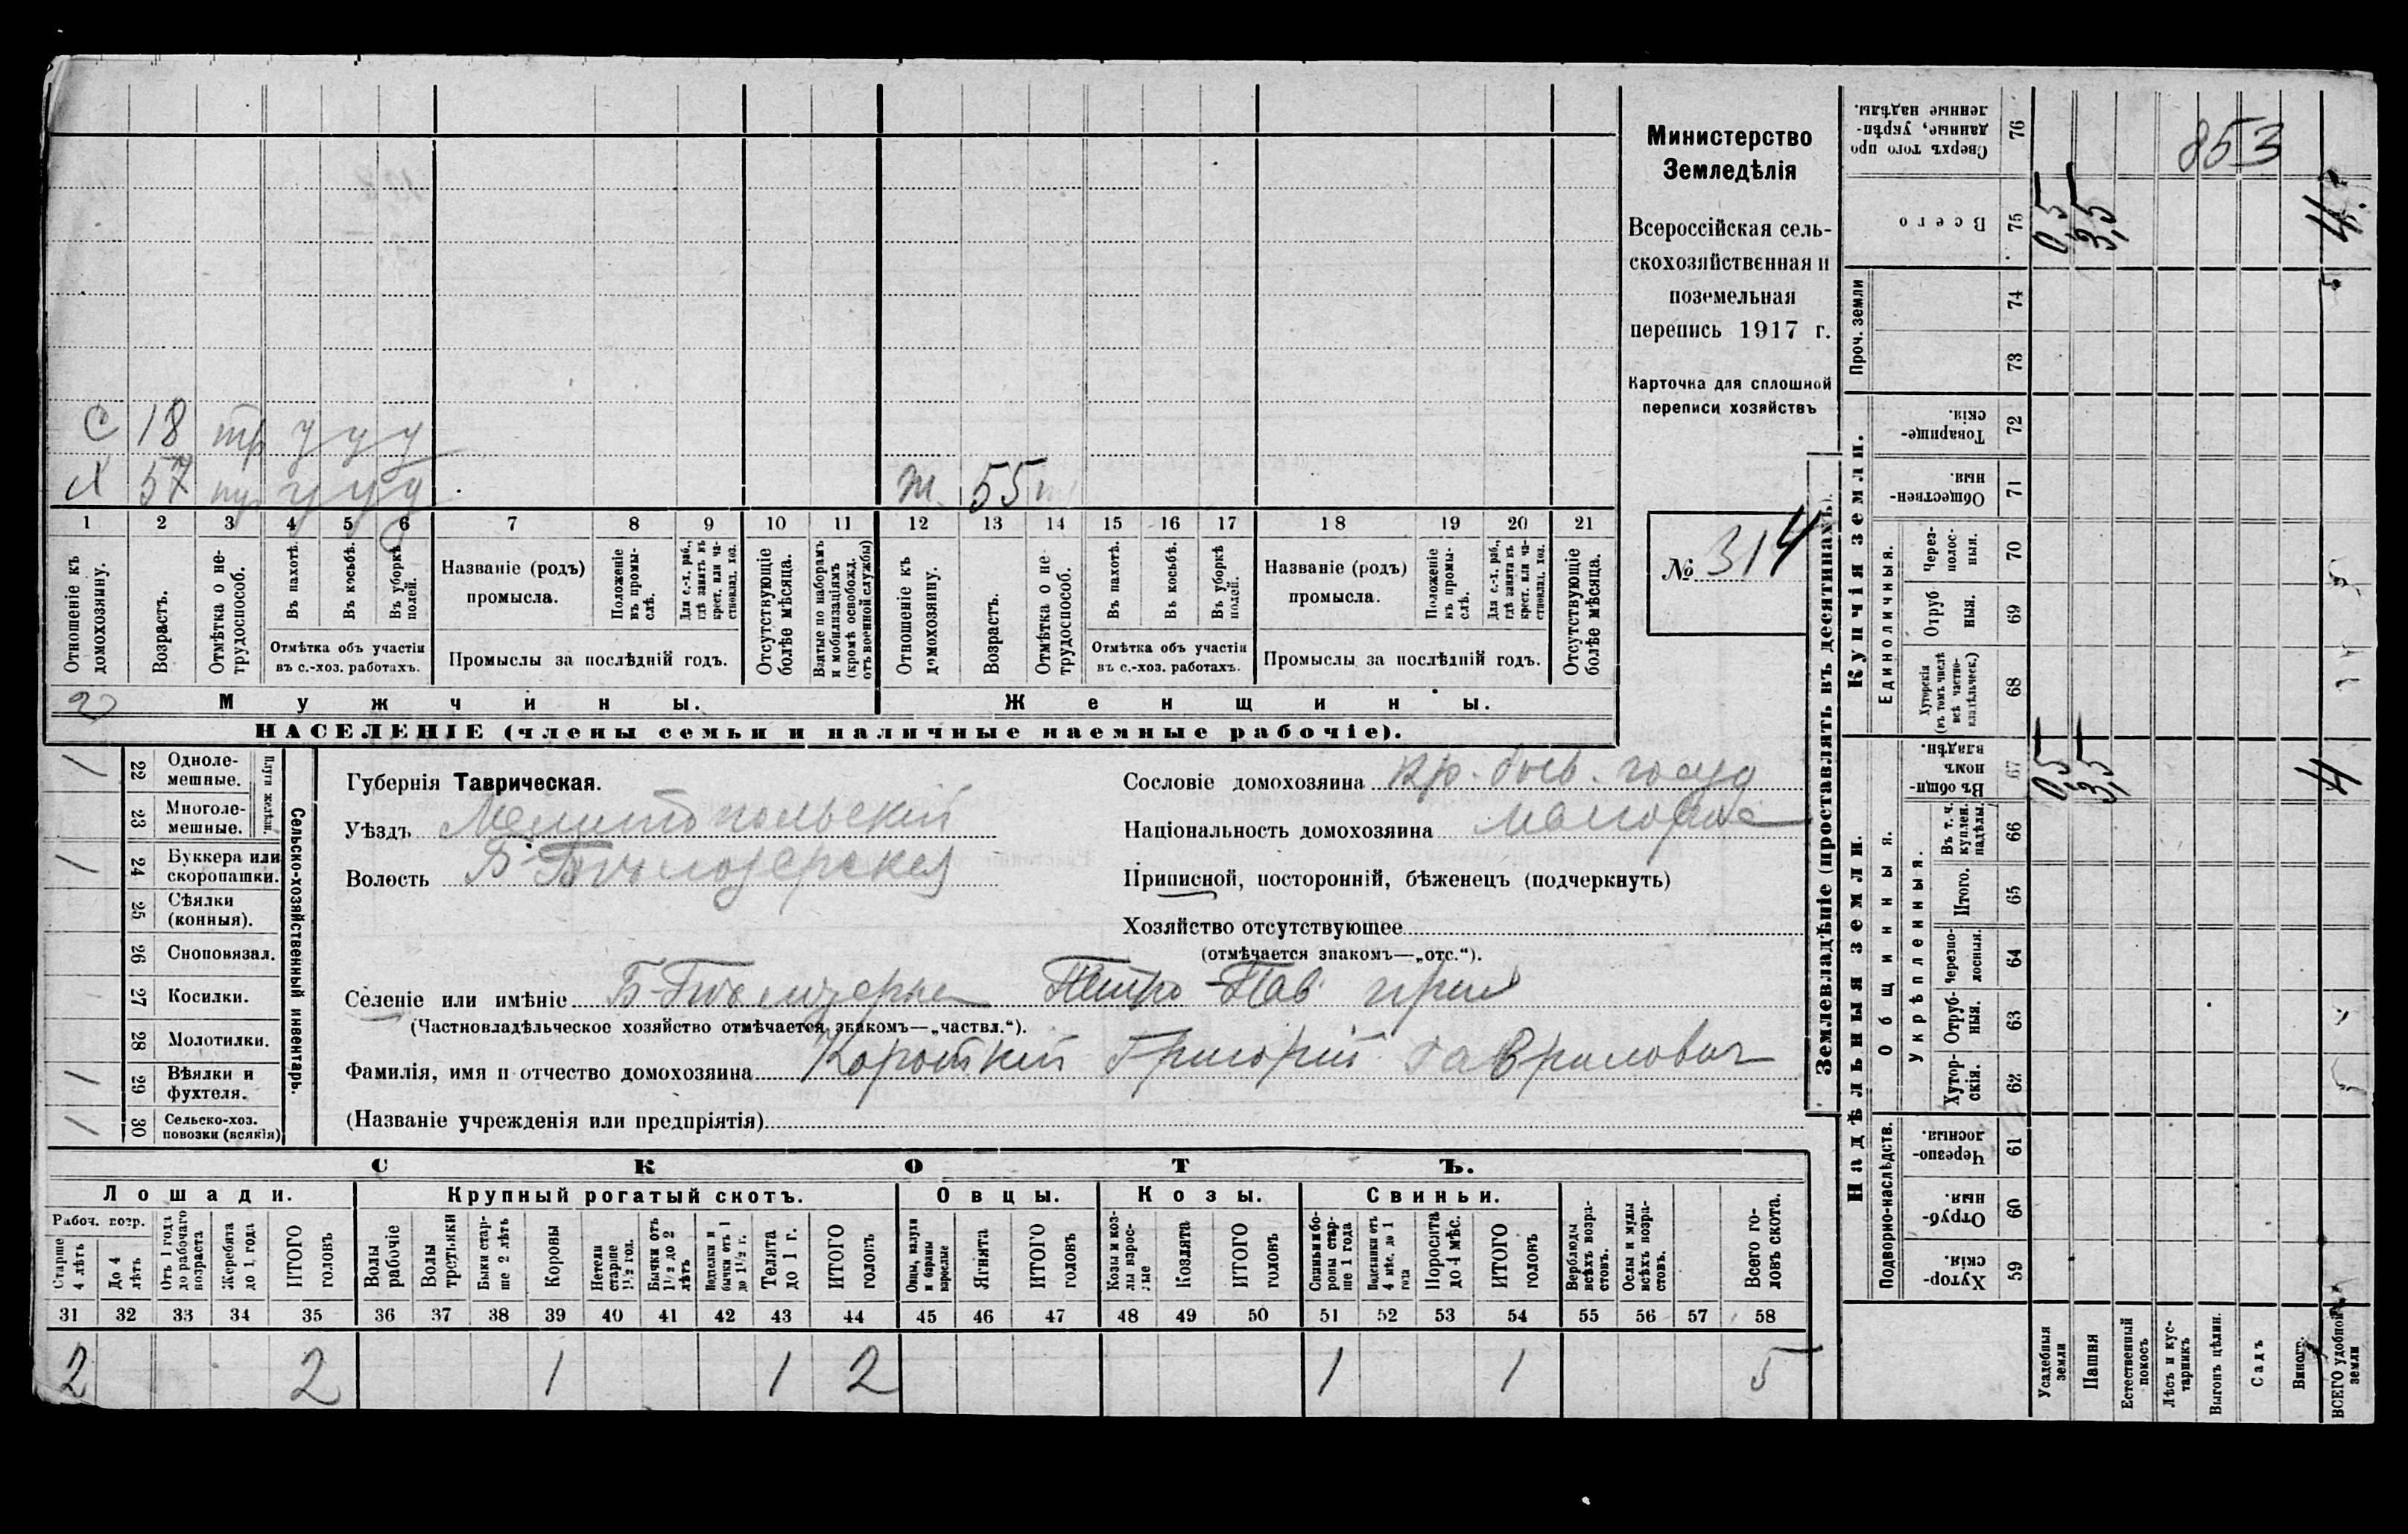 С 18 тр у у у
Х 57 тр у у у
ж 55
1 2 3 4 5 6 7 8 9 10 11 12 13 14 15 16 17 18 19 20 21
Отношеніе къ домохозяину.
Возрастъ.
Отмѣтка о нетрудоспособ.
Въ пахотѣ.
Въ косьбѣ.
Въ уборкѣ полей.
Отмѣтка объ участіи въ с.-хоз. работахъ.
Названіе (родъ) промысла.
Положеніе въ промыслѣ.
Для с.-х. раб., гдѣ занятъ въ крест. или частновлад. хоз.
Промыслы за послѣдній годъ.
Отсутствующіе болѣе мѣсяца.
Взятые по наборамъ и мобилизаціямъ (кромѣ освобожд. отъ военной службы)
Отношеніе къ домохозяину.
Возрастъ.
Отмѣтка о нетрудоспособ.
Въ пахотѣ.
Въ косьбѣ.
Въ уборкѣ полей.
Отмѣтка объ участіи въ с.-хоз. работахъ.
Названіе (родъ) промысла.
Положеніе въ промыслѣ.
Для с.-х. раб., гдѣ занята въ крест. или частновлад. хоз.
Промыслы за послѣдній годъ.
Отсутствующіе болѣе мѣсяца.
2 Мужчины. Женщины.
НАСЕЛЕНІЕ (члены семьи и наличные наемные рабочіе).
Министерство
Земледѣлія
Всероссійская сель-
скохозяйственная и
поземельная
перепись 1917 г.
Карточка для сплошной
переписи хозяйствъ
№ 314
Сельско-хозяйственный инвентарь.
Плуги желѣзн.
1 22 Одноле-
мешные.
23 Многоле-
мешные.
1 24 Буккера или
скоропашки.
25 Сѣялки
(конныя).
26 Сноповязал.
27 Косилки.
28 Молотилки.
1 29 Вѣялки и
фухтеля.
1 30 Сельско-хоз.
повозки (всякія)
Губернія Таврическая.
Уѣздъ Мелитопольскій
Волость Б-Бѣлозерская
Сословіе домохозяина Кр. быв. госуд
Національность домохозяина малорос
Приписной, посторонній, бѣженецъ (подчеркнуть)
Хозяйство отсутствующее
(отмѣчается знакомъ—„отс.“).
Селеніе или имѣніе Б-Бѣлозерка Петро-Пав прих
(Частновладѣльческое хозяйство отмѣчается знакомъ—„частвл.“).
Фамилія, имя и отчество домохозяина Короткій Григорій Гаврилович
(Названіе учрежденія или предпріятія)
СКОТЪ.
Лошади. Крупный рогатый скотъ. Овцы. Козы. Свиньи.
Рабоч. возр.
Старше 4 лѣтъ
До 4 лѣтъ
Отъ 1 года до рабочаго возраста
Жеребята до 1 года
ИТОГО головъ
Волы рабочіе
Волы третьяки
Быки старше 2 лѣтъ
Коровы
Нетели старше 1½ год.
Бычки отъ 1½ до 2 лѣтъ
Подтелки и бычки отъ 1 до 1½ г.
Телята до 1 г.
ИТОГО головъ
Овцы, валухи и бараны взрослые
Ягнята
ИТОГО головъ
Козы и козлы взрослые
Козлята
ИТОГО головъ
Свиньи и боровы старше 1 года
Подсвинки отъ 4 мѣс. до 1 года
Поросята до 4 мѣс.
ИТОГО головъ
Верблюды всѣхъ возрастовъ.
Ослы и мулы всѣхъ возрастовъ.
Всего головъ скота.
31 32 33 34 35 36 37 38 39 40 41 42 43 44 45 46 47 48 49 50 51 52 53 54 55 56 57 58
2 2 1 1 2 1 1 5
Землевладѣніе (проставлять въ десятинахъ).
Надѣльныя земли. Купчія земли. Проч. земли
Подворно-наслѣдств. Общинныя. Укрѣпленныя. Единоличныя.
Хуторскія. 59
Отрубныя. 60
Черезполосныя. 61
Хуторскія. 62
Отрубныя. 63
Черезполосныя. 64
Итого. 65
Въ т. ч. куплен. надѣлы. 66
Въ общинномъ владѣн. 67
Хуторскія (въ томъ числѣ всѣ частновладѣльческ.) 68
Отрубныя. 69
Черезполосныя. 70
Общественныя. 71
Товарищескія. 72
73
74
Всего 75
Сверхъ того проданные, укрѣпленные надѣлы. 76
Усадебныя земли 0,5 0,5
Пашня 3,5 3,5
Естественный покосъ
Лѣсъ и кустарникъ
Выгонъ цѣлин.
Садъ
Виногр.
ВСЕГО удобной земли 4 4
853